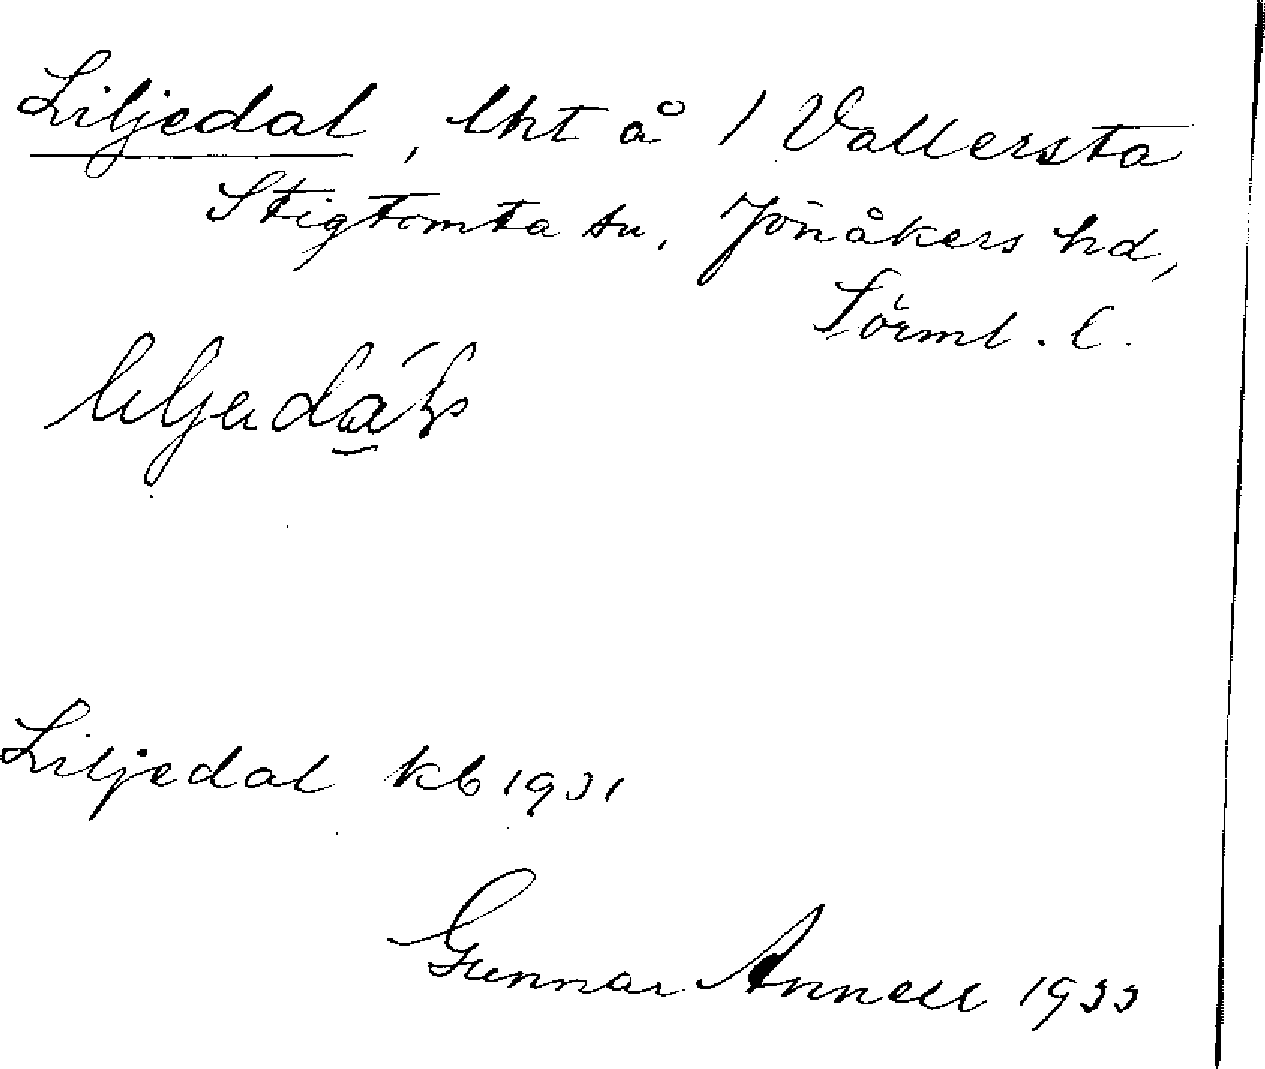 Liljedal, lht å 1 Vallersta
Stigtomta sn, Jönåkers hd,
Sörml. l.
Liljedal kb 1931
Gunnar Annell 1933